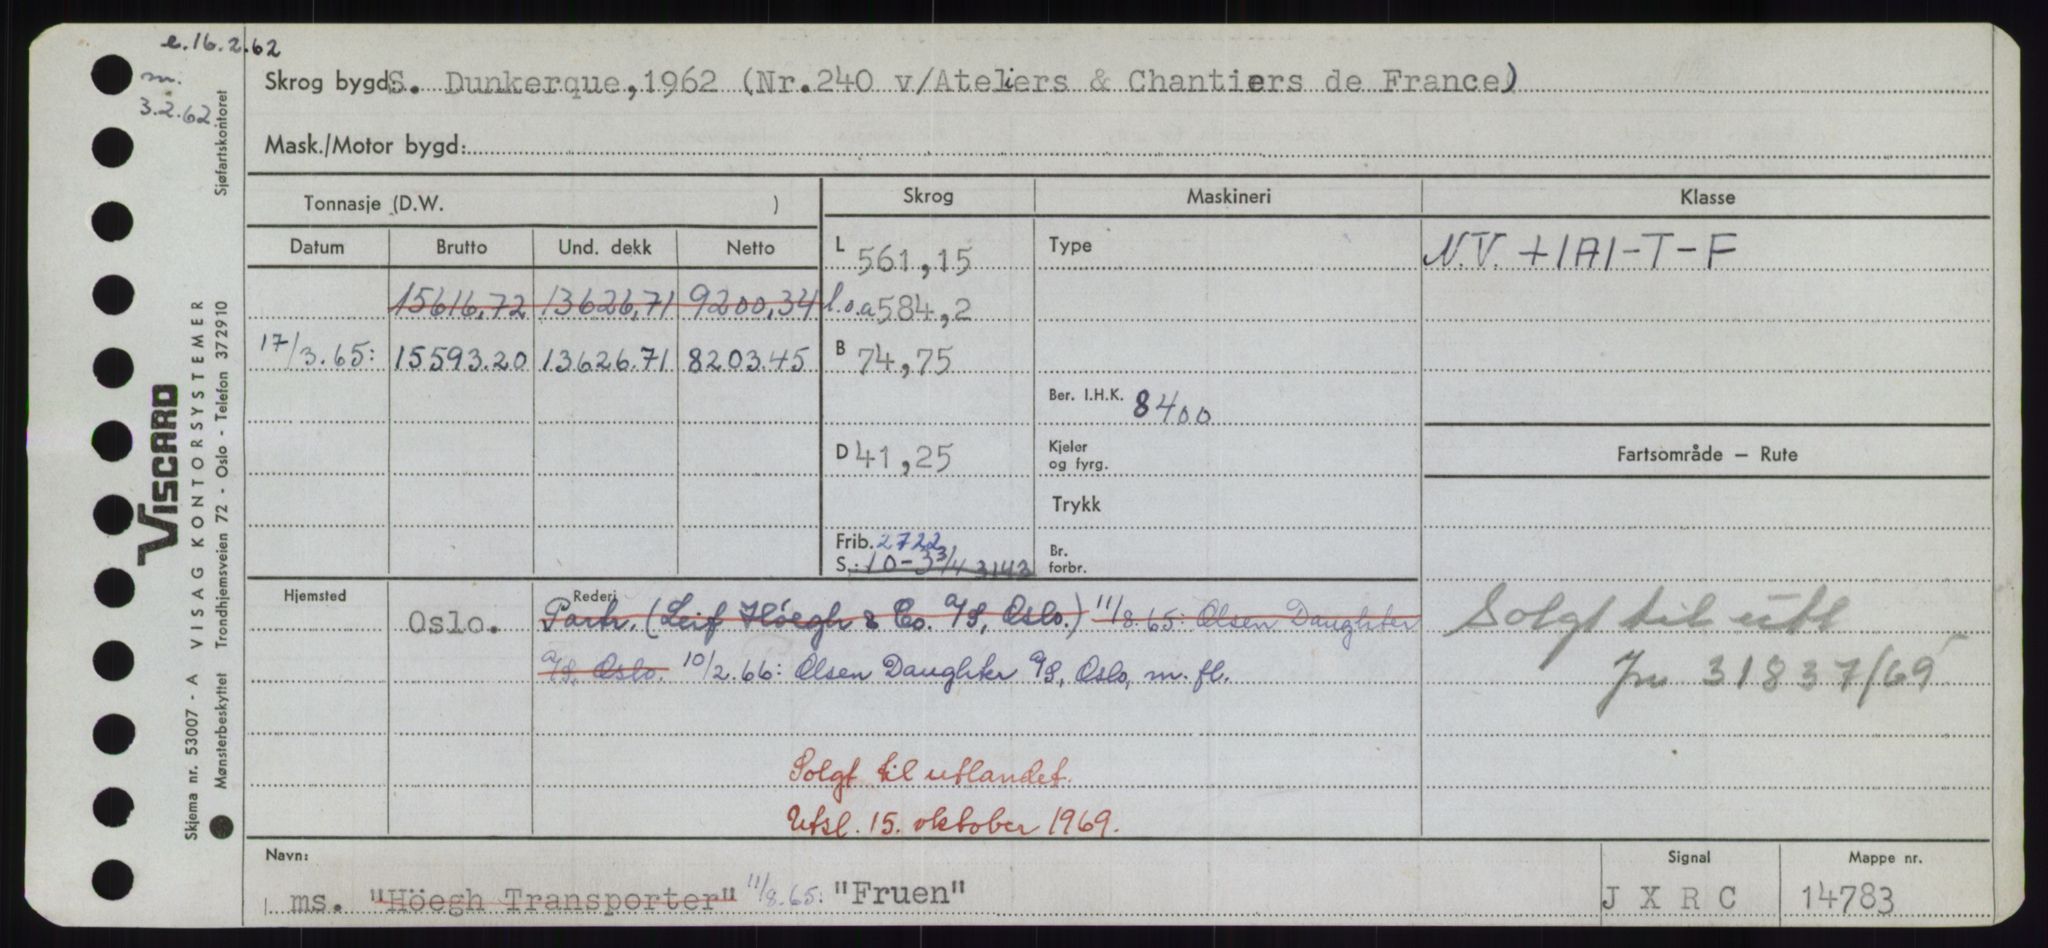 e. 16.2.62
m.
3.2.62.
Skrog bygd: S. Dunkerque, 1962 (Nr. 240 v/Ateliers & Chantiers de France)
Mask./Motor bygd:
Tonnasje (D.W. )
Skrog
Maskineri
Klasse
Datum Brutto Und. dekk Netto
L 561,15
Type
N.V. +1A1-T-F
15616,72 13626,71 9200,34
l.o.a 584,2
17/3.65: 15593.20 13626.71 8203.45
B 74,75
Ber. I.H.K. 8400
D 41,25
Kjeler
og fyrg.
Fartsområde – Rute
Trykk
Frib. 2722
S.: 10-3 3/4 3143
Br.
forbr.
Hjemsted
Oslo.
Rederi
Partr. (Leif Höegh & Co. A/S, Oslo.) 11/8.65: Olsen Daughter
A/S, Oslo. 10/2.66: Olsen Daughter A/S, Oslo, m. fl.
Solgt til utl
Jnr 31837/69
Solgt til utlandet.
Utsl. 15. oktober 1969.
Navn:
ms. "Höegh Transporter" 11/8.65: "Fruen"
Signal
J X R C
Mappe nr.
14783
VISCARD
VISAG KONTORSYSTEMER
Skjema nr. 53007 - A
Mønsterbeskyttet Trondhjemsveien 72 - Oslo - Telefon 372910 Sjøfartskontoret